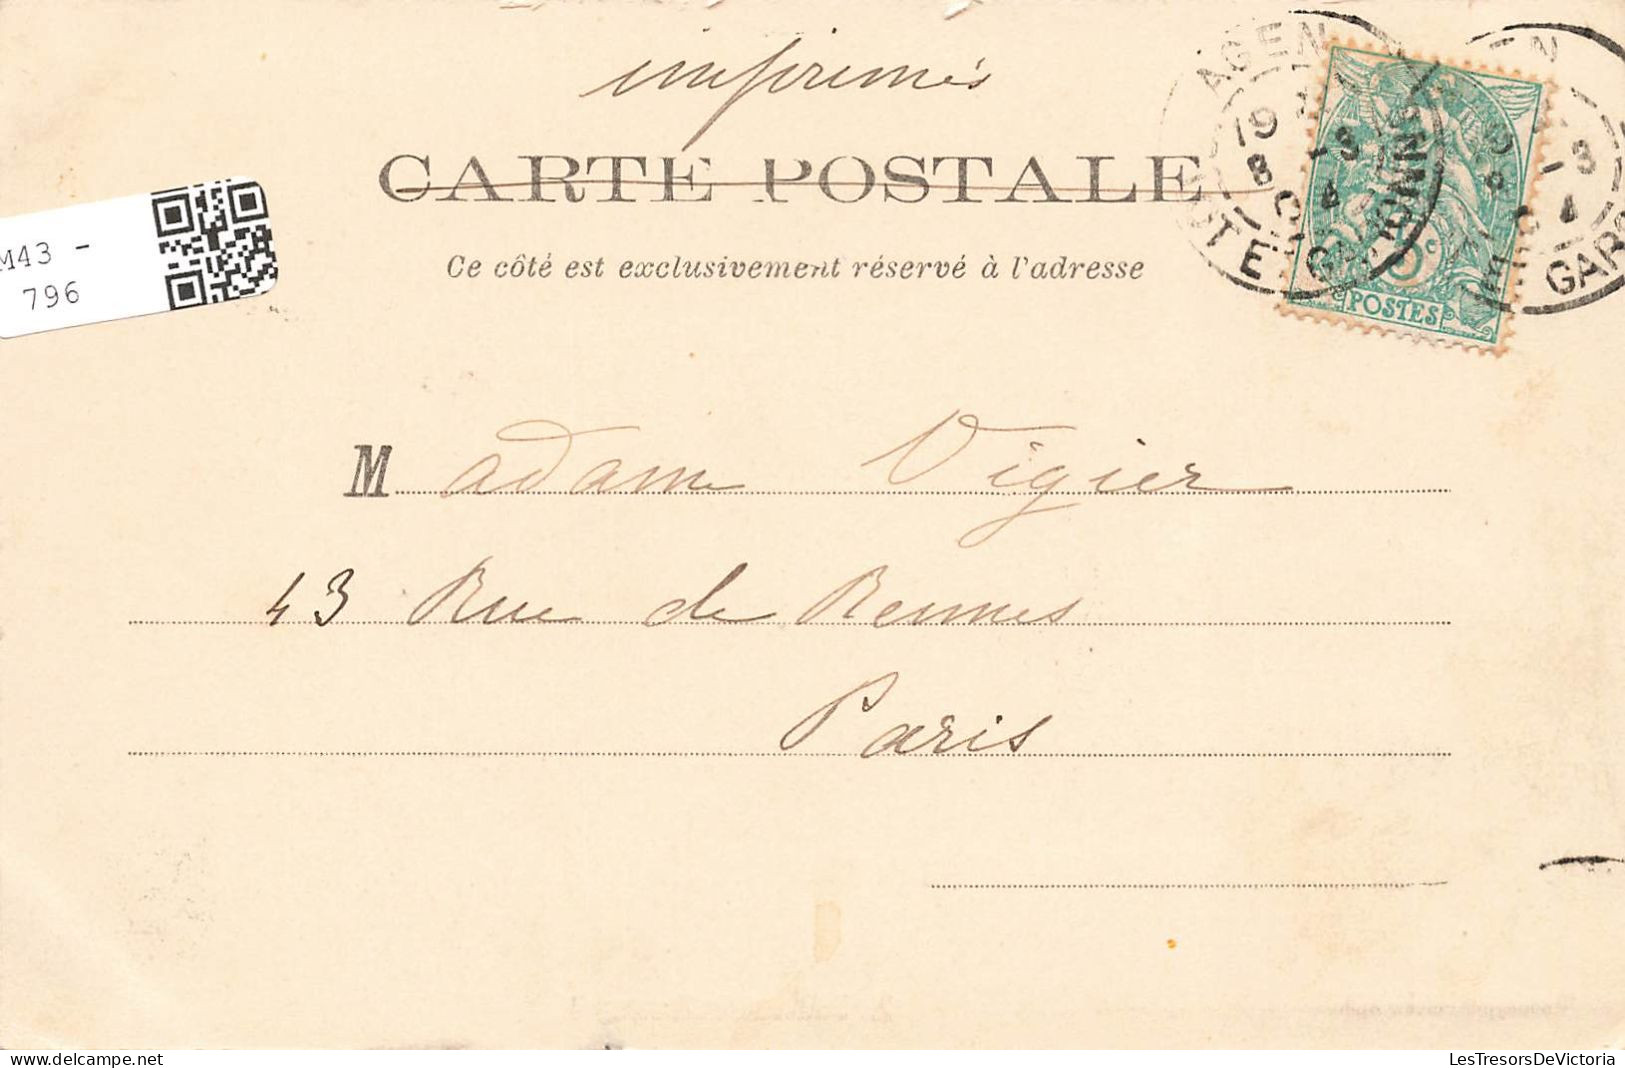 imprimés
CARTE POSTALE
Ce côté est exclusivement réservé à l'adresse
M43 -
796
AGEN
19
8
-3
GARONNE
-3
GAR
5c
POSTES
Madame Vigier
43 Rue de Rennes
Paris
LesTresorsDeVictoria